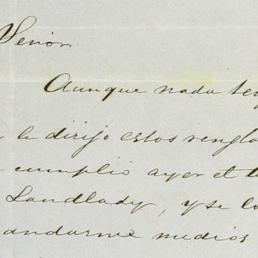 Señor
Aunque nada ten
le dirijo estos renglo
cumplio ayer el t
Landlady, y se lo
andarme medios